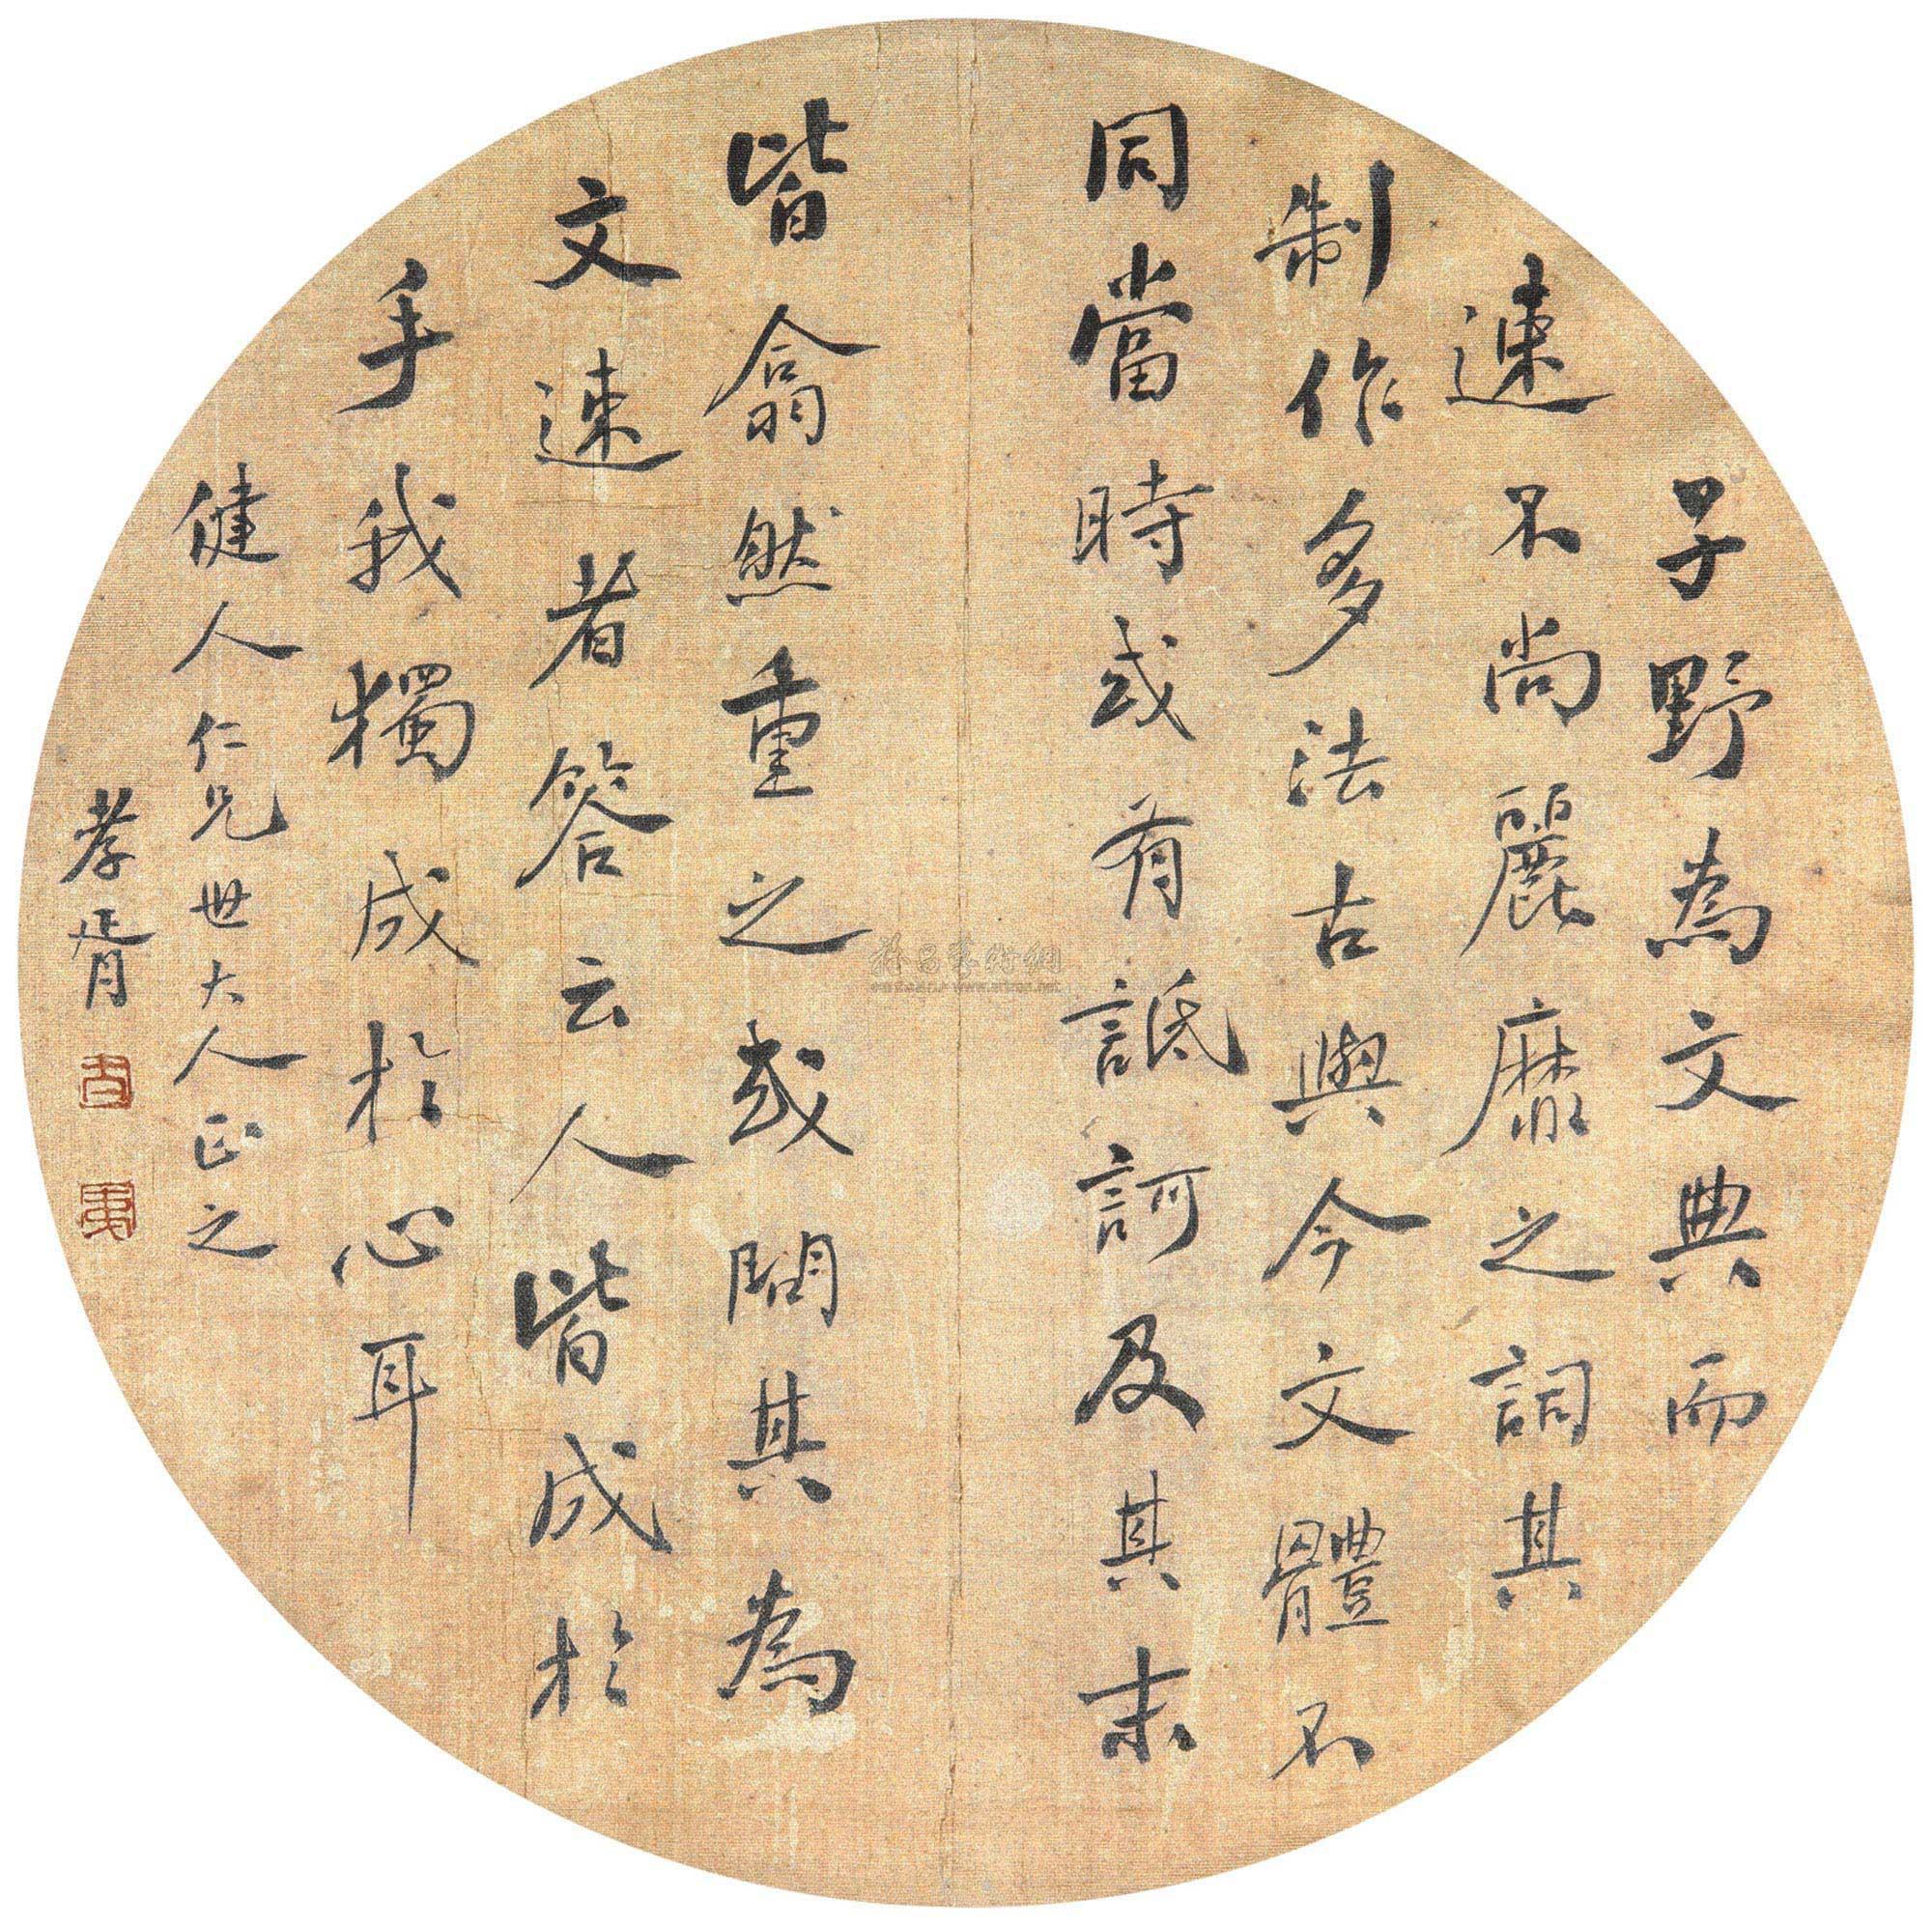 子野為文典而
速不尚麗靡之詞其
制作多法古與今文體不
同當時或有詆訶及其末
皆翕然重之或問其為
文速者答云人皆成於
手我獨成於心耳
健人仁兄世大人正之
孝胥